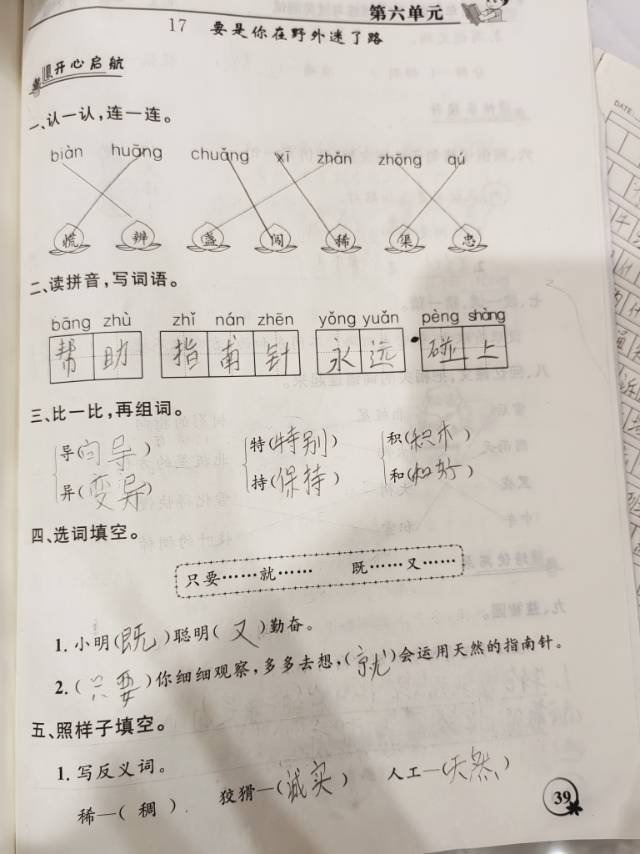 第六单元
17 要是你在野外迷了路
开心启航
一、认一认，连一连。
biàn huāng chuǎng xī zhǎn zhōng qú
慌 辨 盏 闯 稀 渠 忠
二、读拼音，写词语。
bāng zhù zhǐ nán zhēn yǒng yuǎn pèng shàng
帮助 指南针 永远 碰上
三、比一比，再组词。
导(向导) 特(特别) 积(积木)
异(变异) 持(保持) 和(和好)
四、选词填空。
只要……就…… 既……又……
1. 小明(既)聪明(又)勤奋。
2. (只要)你细细观察，多多去想，(就)会运用天然的指南针。
五、照样子填空。
1. 写反义词。
稀—(稠) 狡猾—(诚实) 人工—(天然)
39
DATE: